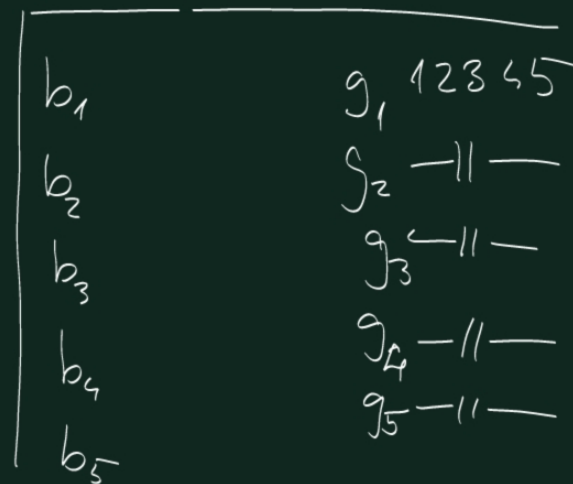 b₁ g₁ 12345
b₂ g₂ —||—
b₃ g₃ —||—
b₄ g₄ —||—
b₅ g₅ —||—